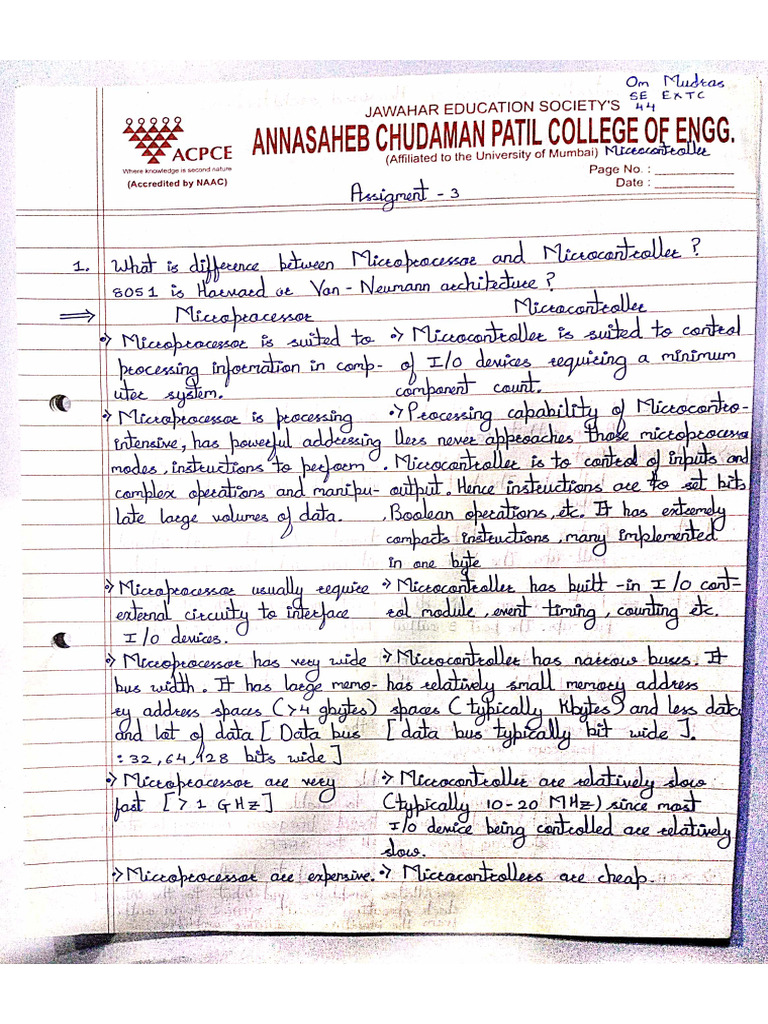 Om Mudras
SE EXTC
44
JAWAHAR EDUCATION SOCIETY'S
ANNASAHEB CHUDAMAN PATIL COLLEGE OF ENGG.
(Affiliated to the University of Mumbai) Microcontroller
ACPCE
Where knowledge is second nature
(Accredited by NAAC)
Page No. :
Date :
Assigment - 3
1. What is difference between Microprocessor and Microcontroller?
8051 is Harvard or Van-Neumann architecture?
⇒ Microprocessor Microcontroller
Microprocessor is suited to Microcontroller is suited to control
processing information in comp- of I/O devices requiring a minimum
uter system. component count.
Microprocessor is processing Processing capability of Microcontro-
intensive, has powerful addressing llers never approaches those microprocessor
modes, instructions to perform . Microcontroller is to control of inputs and
complex operations and manipu- output. Hence instructions are to set bits
late large volumes of data. , Boolean operations, etc. It has extremely
compacts instructions, many implemented
in one byte
Microprocessor usually require Microcontroller has built-in I/O cont-
external circuity to interface rol module, event timing, counting etc.
I/O devices.
Microprocessor has very wide Microcontroller has narrow buses. It
bus width. It has large memo- has relatively small memory address
ry address spaces (>4 gbytes) spaces (typically Kbytes) and less data
and lot of data [Data bus [data bus typically bit wide].
: 32, 64, 128 bits wide]
Microprocessor are very Microcontroller are relatively slow
fast [> 1 GHz] (typically 10-20 MHz) since most
I/O device being controlled are relatively
slow.
Microprocessor are expensive. Microcontrollers are cheap.